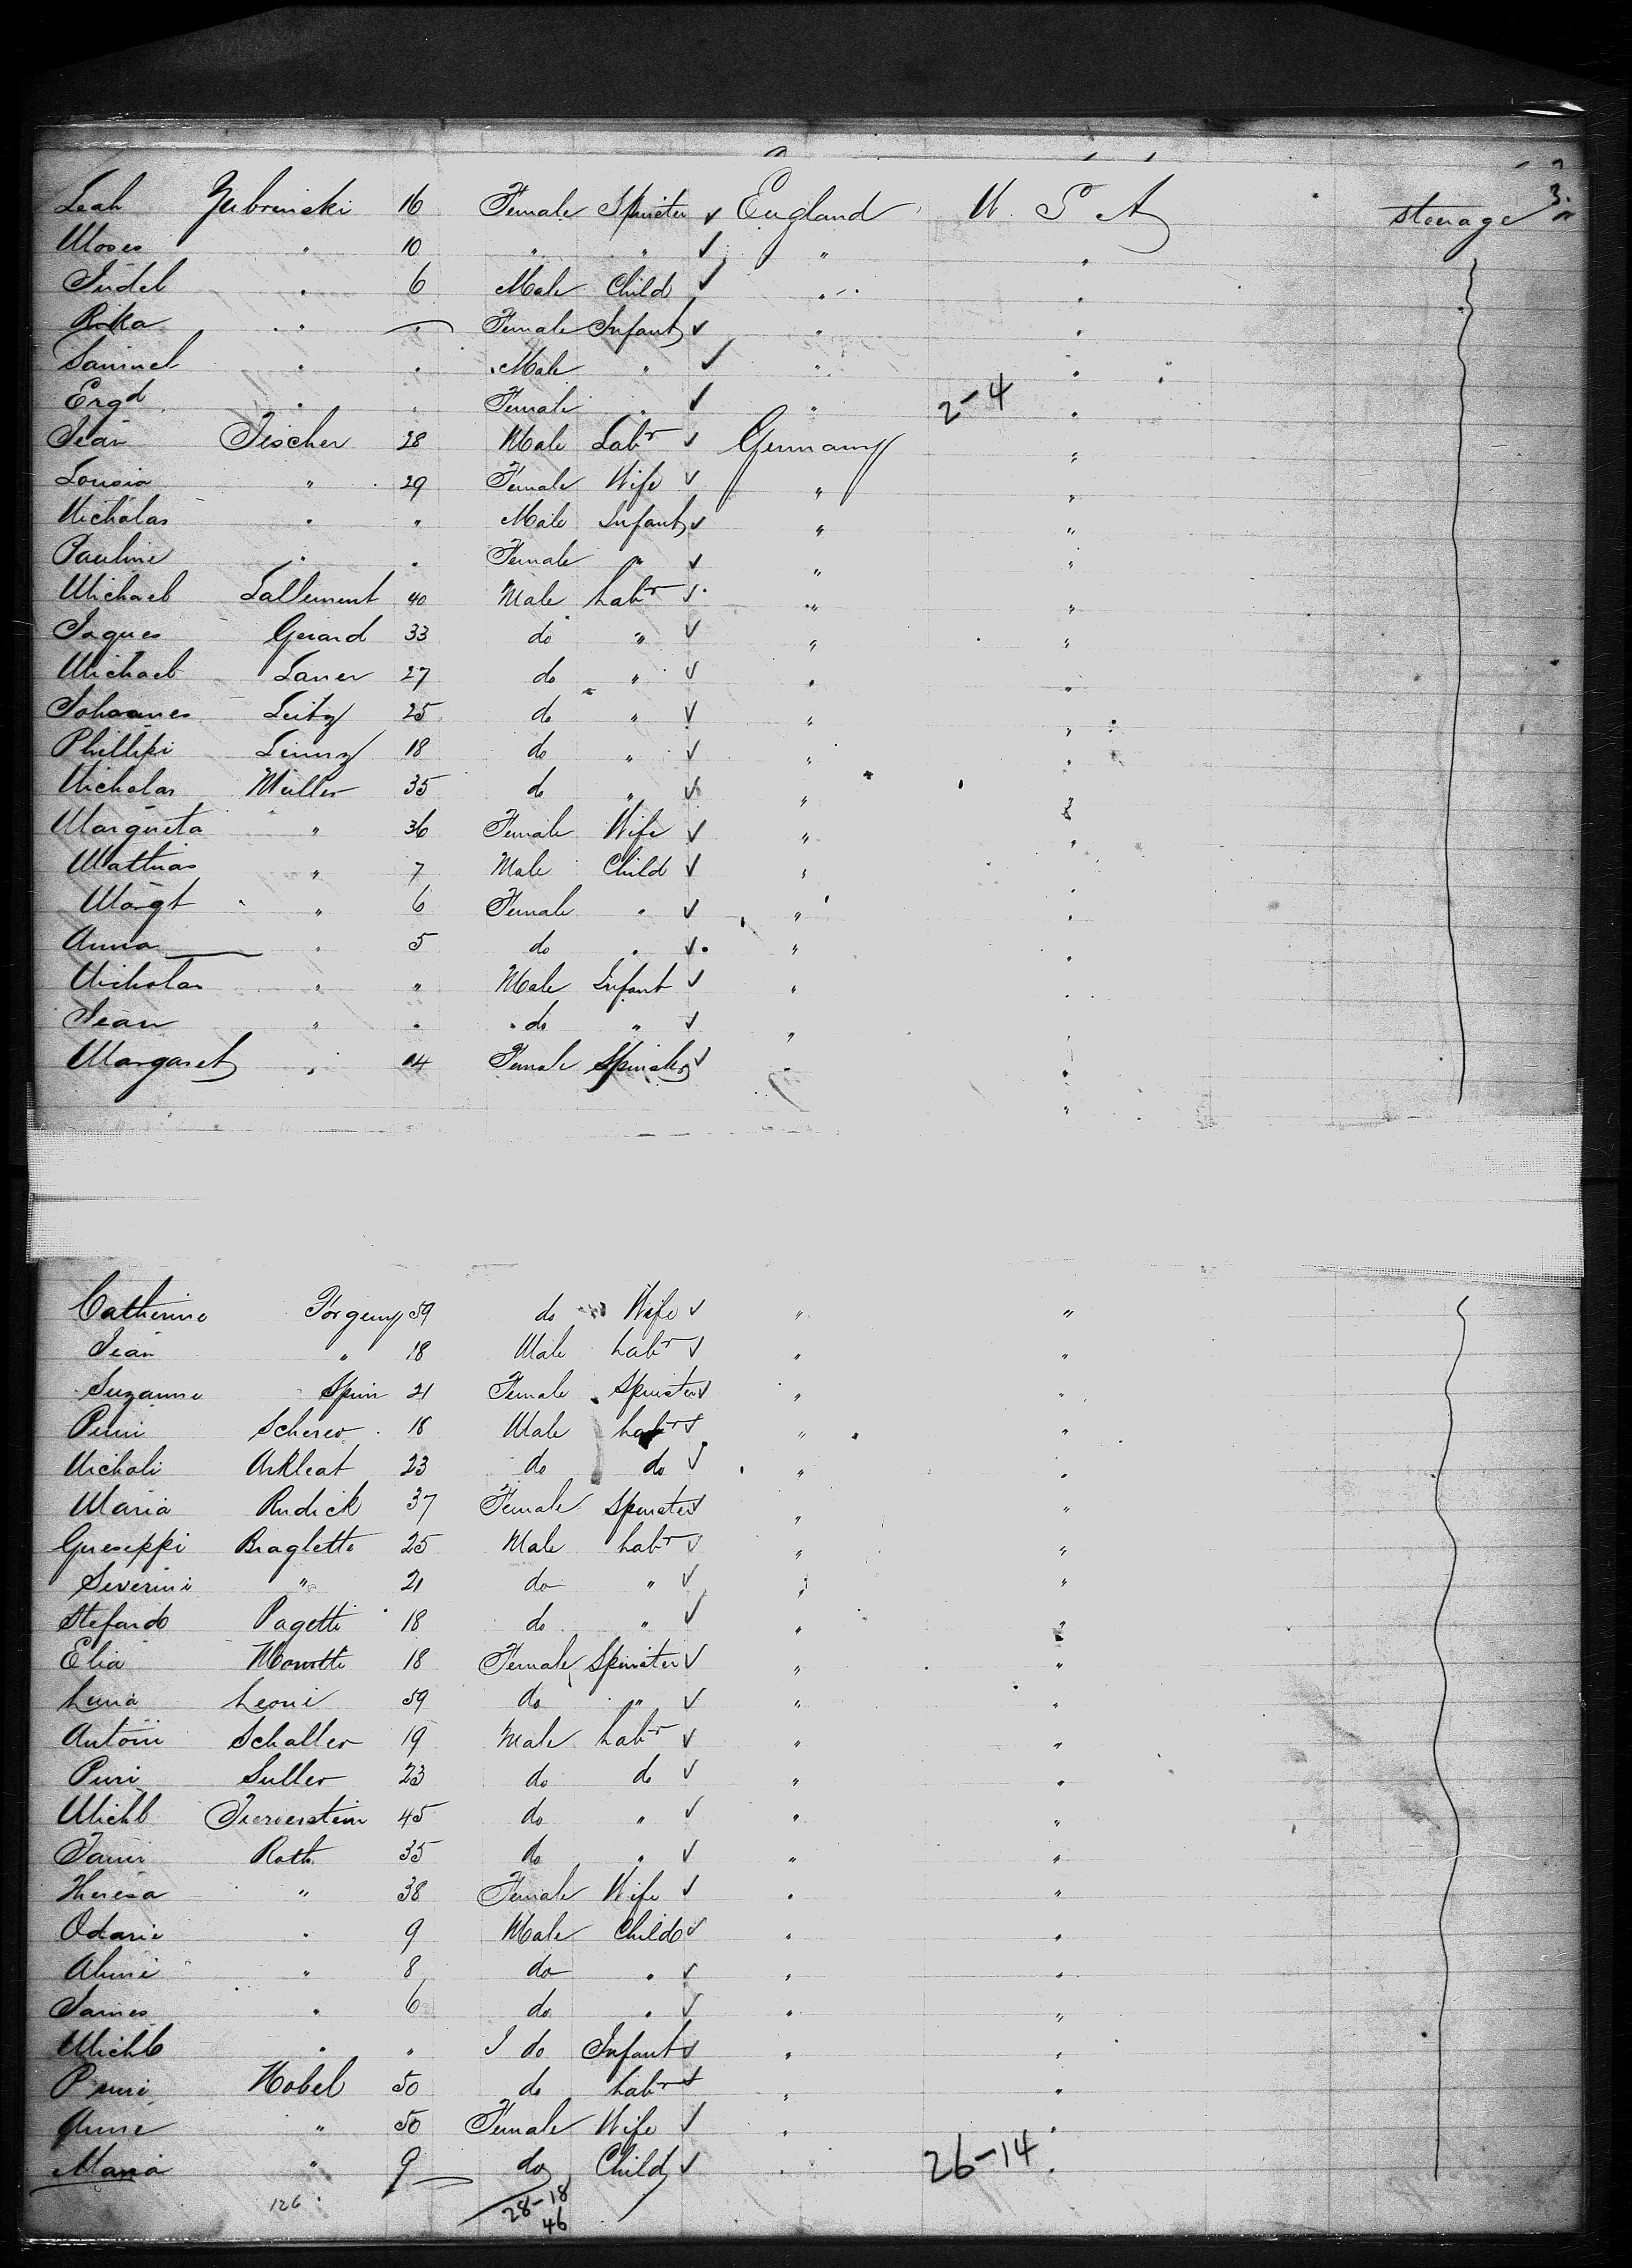 3.
Leah Zubrinski 16 Female Spinster ✓ England U. S. A steerage
Moses " 10 " " ✓ " "
Judel " 6 Male Child ✓ " "
Rika " " Female Infant ✓ " "
Samuel " " Male " ✓ " "
" " Female " ✓ " 2-4 "
Jean Fischer 28 Male Labr ✓ Germany "
Louisa " 29 Female Wife ✓ " "
Nicholas " " Male Infant ✓ " "
Pauline " " Female " ✓ " "
Michael Lallement 40 Male Labr ✓ " "
Jaques Gerard 33 do " ✓ " "
Michael Laner 27 do " ✓ " "
Johannes Leitz 25 do " ✓ " "
Phillipi 18 do " ✓ " "
Nicholas Müller 35 do " ✓ " "
Margreta " 36 Female Wife ✓ " "
Mathias " 7 Male Child ✓ " "
Margt " 6 Female " ✓ " "
Anna " 5 do " ✓ " "
Nicholas " " Male Infant ✓ " "
Jean " " do " ✓ " "
Margaret " 14 Female Spinster ✓ " "
Catherine Torgeny 59 do Wife ✓ " "
Jean " 18 Male Labr ✓ " "
Suzanne Spin 21 Female Spinster ✓ " "
Scherer 18 Male Labr ✓ " "
Nicholi Arkleat 23 do do ✓ " "
Maria Rudick 37 Female Spinster ✓ " "
Gueseppi Braglette 25 Male Labr ✓ " "
Severini " 21 do " ✓ " "
Stefardo Pagetti 18 do " ✓ " "
Elia 18 Female Spinster ✓ " "
Luna Leoni 59 do " ✓ " "
Antoni Schaller 19 Male Labr ✓ " "
Suller 23 do do ✓ " "
Michl 45 do " ✓ " "
Roth 35 do " ✓ " "
Theresa " 38 Female Wife ✓ " "
Odarie " 9 Male Child ✓ " "
" 8 do " ✓ " "
James " 6 do " ✓ " "
Michl " " do Infant ✓ " "
Nobel 50 do Labr ✓ " "
Anne " 50 Female Wife ✓ " "
Maria " 9 do Child ✓ " 26-14 "
126 28-18
46